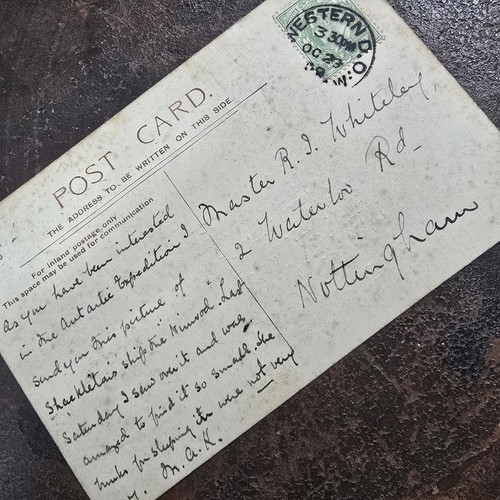 POST CARD.
THE ADDRESS TO BE WRITTEN ON THIS SIDE.
For inland postage only
This space may be used for communication
As you have been interested
in the Antartic Expedition I
send you this picture of
Shackletons ship the "Nimrod". Last
Saturday I saw over it and was
amazed to find it so small the
bunks for sleeping in were not very
M. A. K.
WESTERN D.O.
3 30PM
OC 29
W.
Master R. I. Whiteley,
2 Waterloo Rd
Nottingham